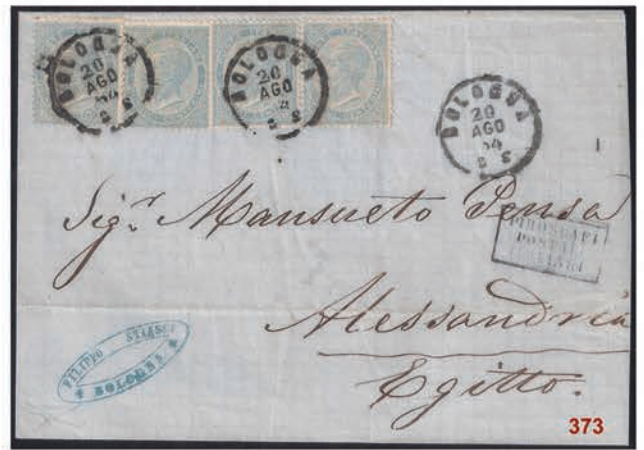 BOLOGNA
20
AGO
64
2 S
BOLOGNA
20
AGO
64
2 S
BOLOGNA
20
AGO
64
2 S
Sigr. Mansueto Pensa
PIROSCAFI
POSTALI
ITALIANI
Alessandria
Egitto.
FILIPPO
BOLOGNA
373